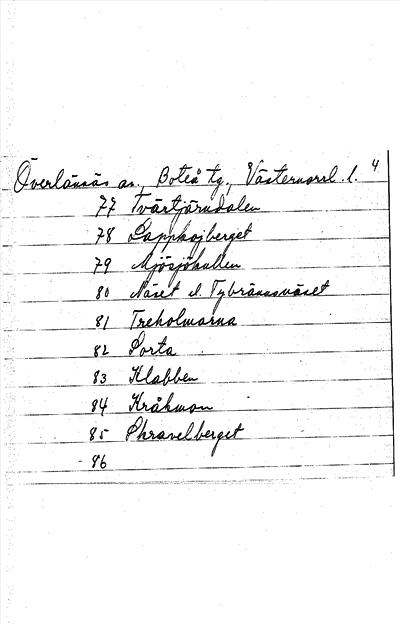 Överlännäs sn., Boteå tg., Västernorrl. l. 4
77 Tvärtjärndalen
78 Lappkojberget
79 Mjösjökullen
80 Näset el. Tybrännsnäset
81 Treholmarna
82 Porta
83 Klabben
84 Kråkmon
85 Skravelberget
86